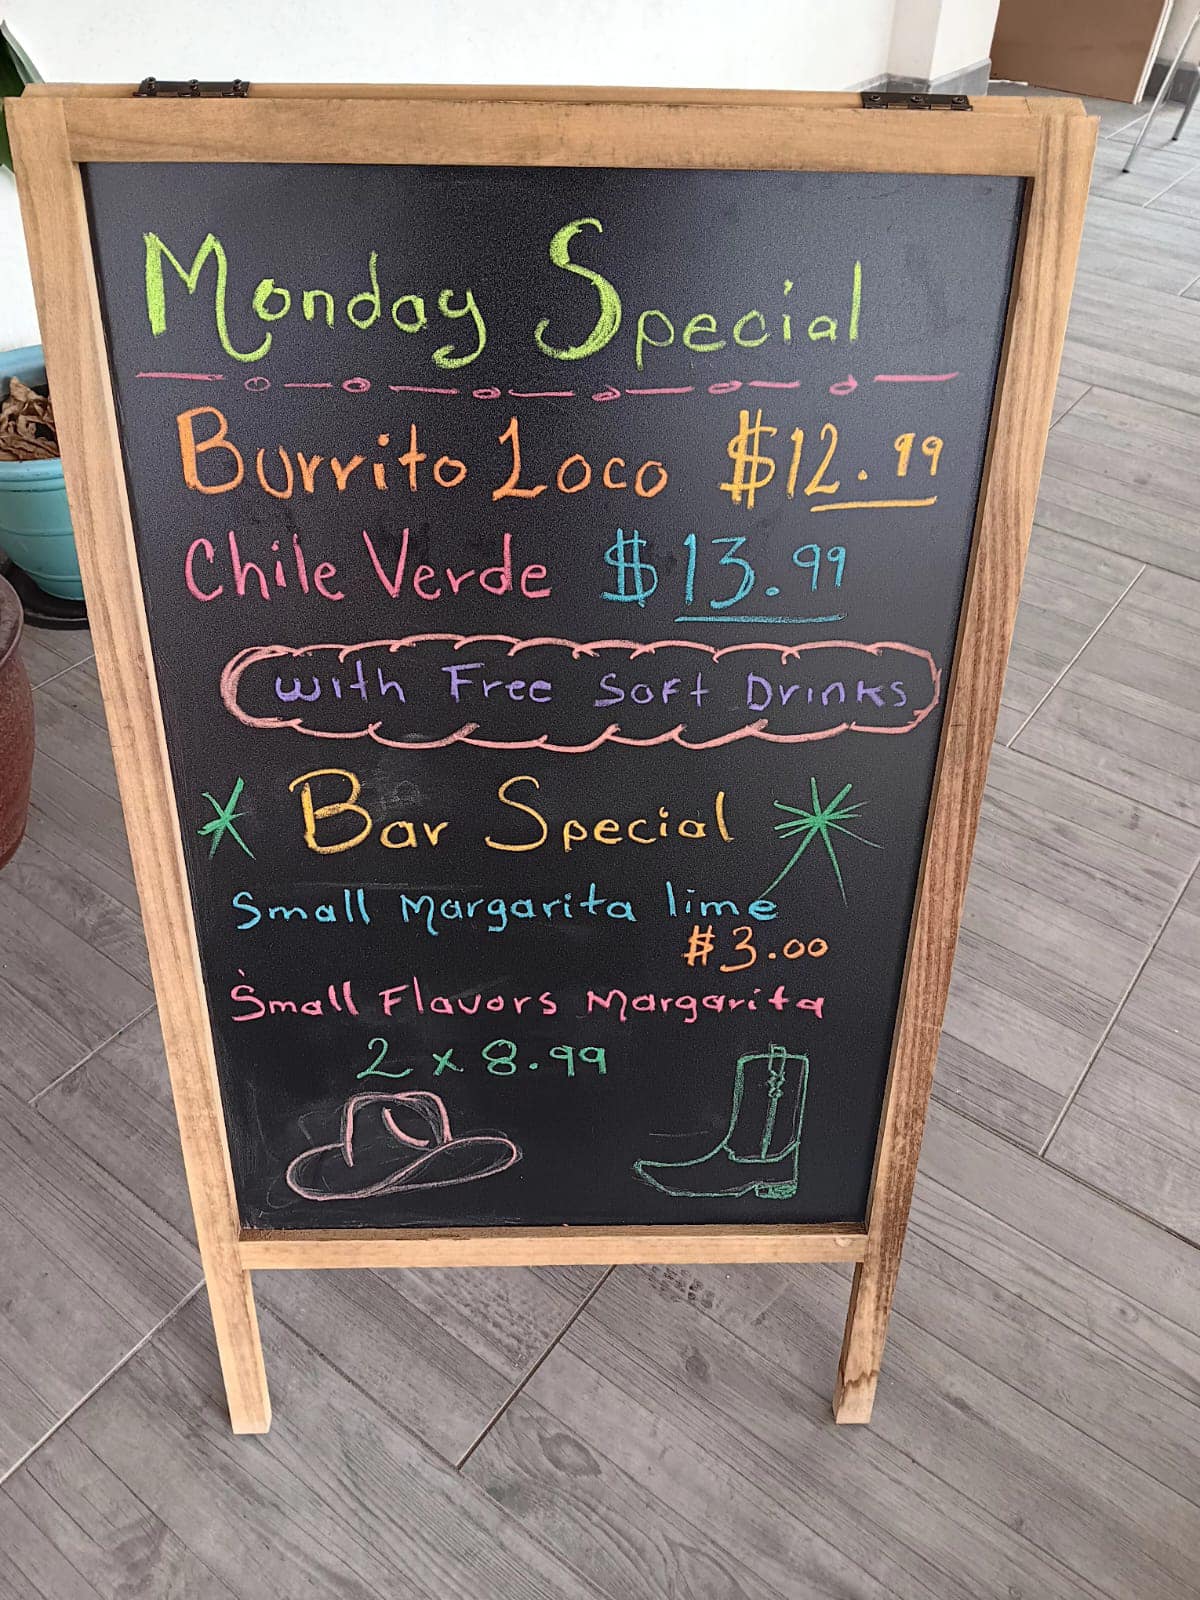 Monday Special
Burrito Loco $12.99
Chile Verde $13.99
with Free Soft Drinks
Bar Special
Small Margarita lime
$3.00
Small Flavors Margarita
2 x 8.99